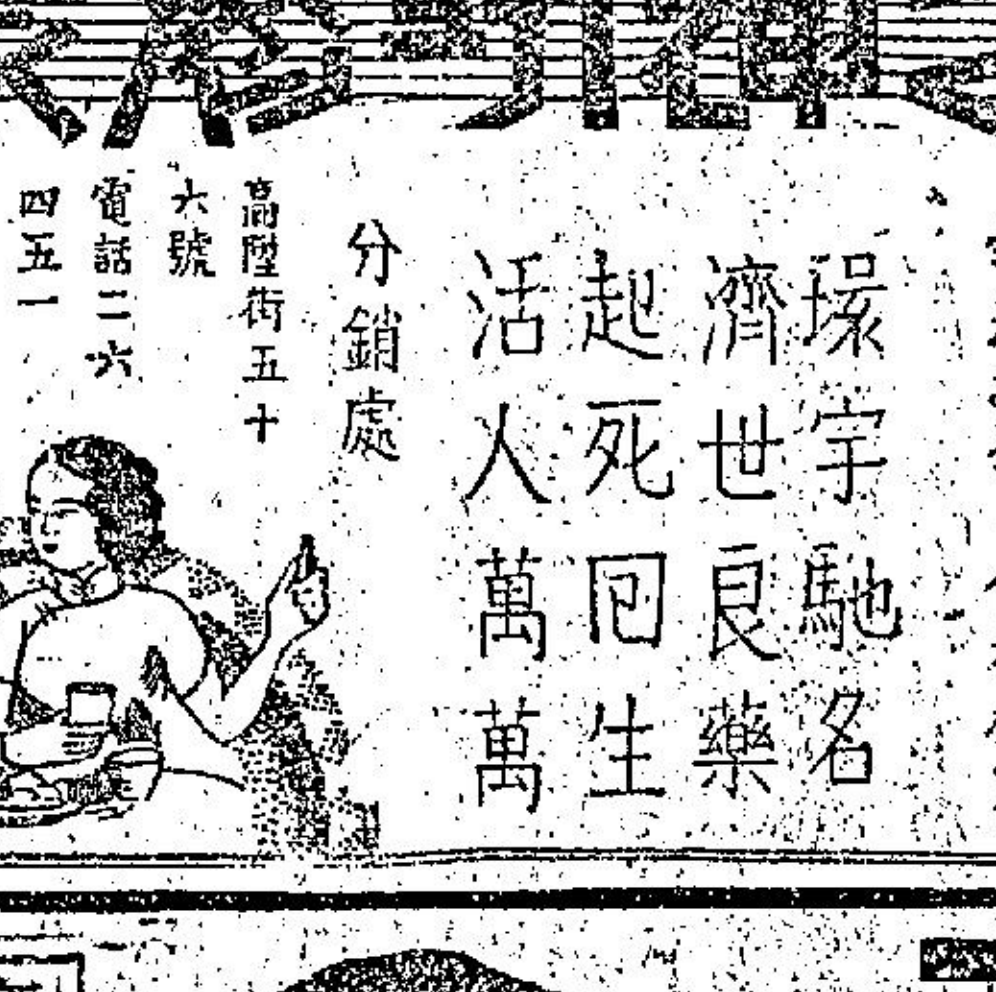 環宇馳名
濟世良藥
起死囘生
活人萬萬
分銷處
高陞街五十
六號
電話二六
四五一